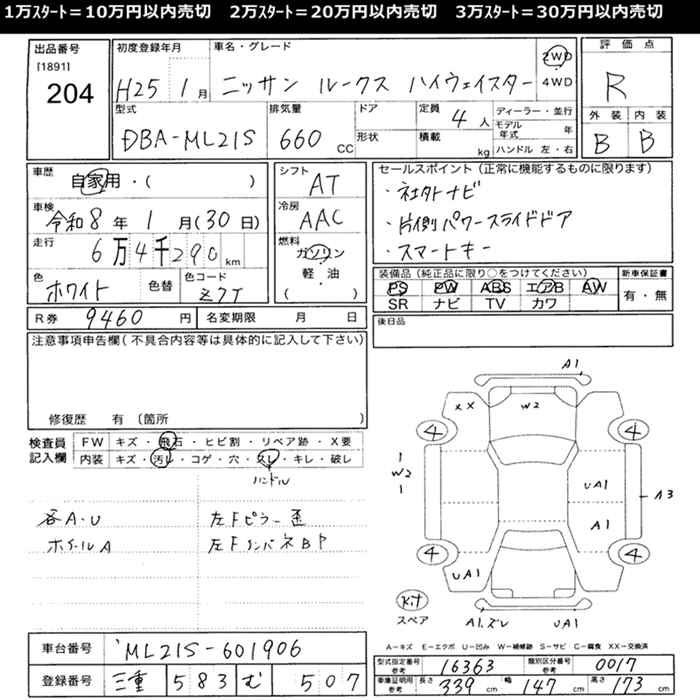 1万スタート＝10万円以内売切　2万スタート＝20万円以内売切　3万スタート＝30万円以内売切
出品番号
[1891]
204
初度登録年月
H25 1月
車名・グレード
ニッサン ルークス ハイウェイスター
2WD
4WD
評価点
R
外装 内装
B B
型式
DBA-ML21S
排気量
660 CC
ドア
形状
定員 4人
積載 kg
ディーラー・並行
モデル年式 年
ハンドル 左・右
車歴
自家用・( )
車検
令和8年1月(30日)
走行
6万4千290km
色
ホワイト
色替
色コード
Z7T
シフト
AT
冷房
AAC
燃料
ガソリン
軽・油
( )
セールスポイント(正常に機能するものに限ります)
・社外ナビ
・片側パワースライドドア
・スマートキー
装備品(純正品に限り○をつけてください)
PS PW ABS エアB AW
SR ナビ TV カワ
新車保証書
有・無
R券 9460円
名変期限 月 日
後日品
注意事項申告欄(不具合内容等は具体的に記入して下さい)
修復歴 有(箇所 )
検査員
記入欄
FW キズ・飛石・ヒビ割・リペア跡・X要
内装 キズ・汚レ・コゲ・穴・スレ・キレ・破レ
ハンドル
各A・U
ホイールA
左Fピラー歪
左FインパネBP
A1
XX
W2
4
4
1
W2
1
UA1
A3
A1
4
4
UA1
Kit
スペア
A1.ズレ
UA1
A－キズ E－エクボ U－凹み W－補修跡 S－サビ C－腐食 XX－交換済
車台番号 ML21S-601906
登録番号 三重 583 む 507
型式指定番号
参考
16363
類別区分番号
参考
0017
車庫証明用
参考
長さ 339 cm 幅 147 cm 高さ 173 cm